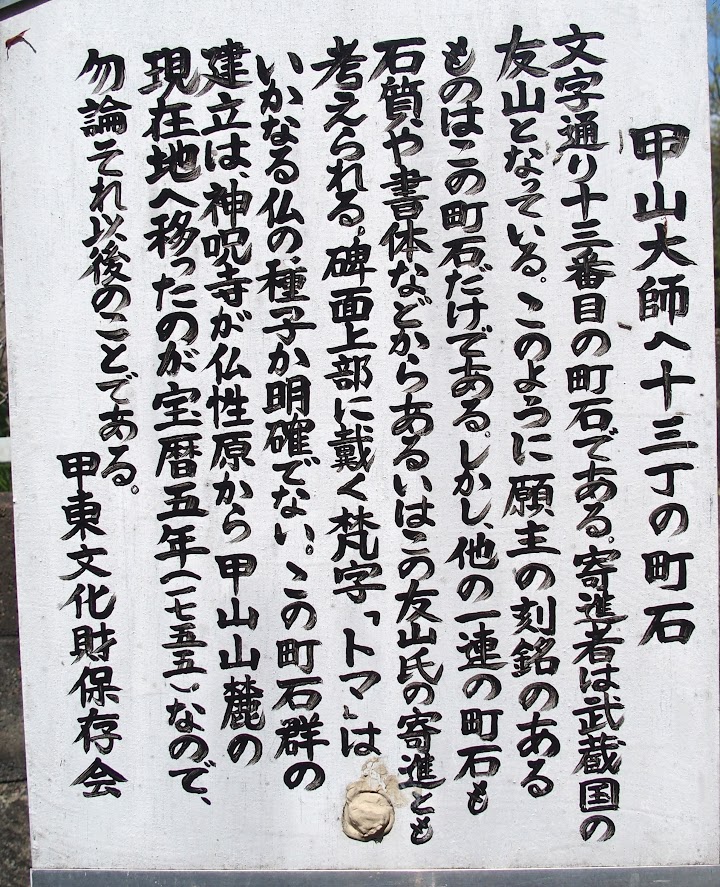 甲山大師へ十三丁の町石
文字通り十三番目の町石である。寄進者は武蔵国の
友山となっている。このように願主の刻銘のある
ものはこの町石だけである。しかし、他の一連の町石も
石質や書体などからあるいはこの友山氏の寄進とも
考えられる。碑面上部に戴く梵字「トマ」は
いかなる仏の種子か明確でない。この町石群の
建立は、神呪寺が仏性原から甲山山麓の
現在地へ移ったのが宝暦五年(一七五五)なので、
勿論それ以後のことである。
甲東文化財保存会